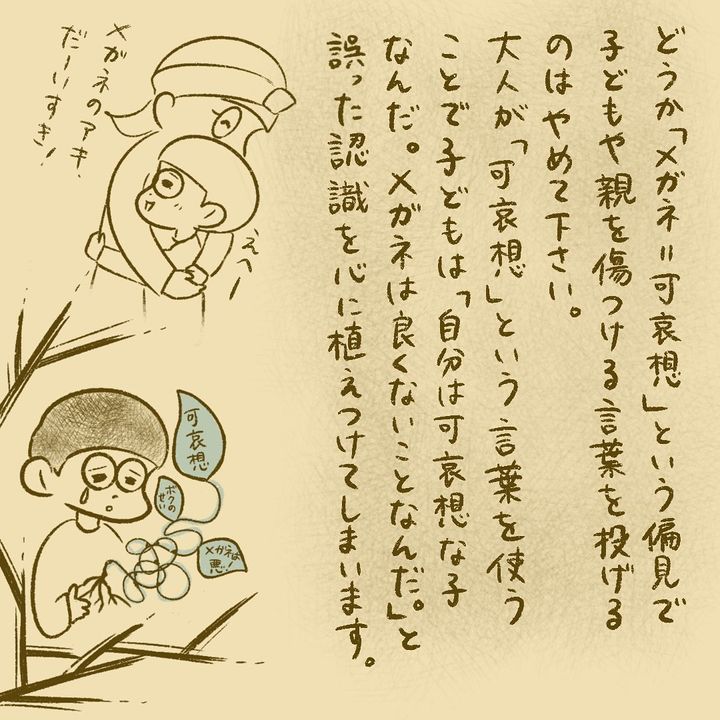 どうか「メガネ=可哀想」という偏見で
子どもや親を傷つける言葉を投げる
のはやめて下さい。
大人が「可哀想」という言葉を使う
ことで子どもは「自分は可哀想な子
なんだ。メガネは良くないことなんだ。」と
誤った認識を心に植えつけてしまいます。
メガネのアキ、
だーいすき!
えへー
可哀想
ボクの
せい
メガネは
悪!